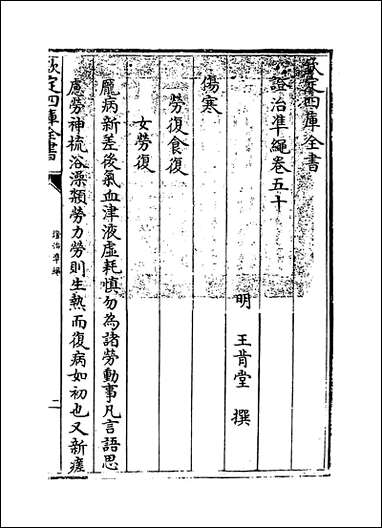 欽定四庫全書
證治準繩卷五十
明 王肯堂 撰
傷寒
勞復食復
女勞復
凡病新差後氣血津液虛耗慎勿為諸勞動事凡言語思
慮勞神梳浴澡頮勞力勞則生熱而復病如初也又新瘥
欽定四庫全書
證治準繩